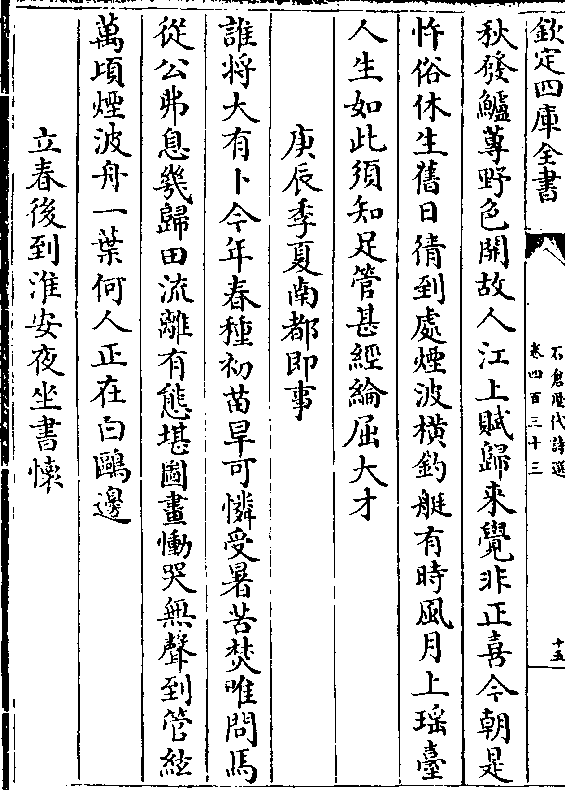 欽定四庫全書
石倉歷代詩選
卷四百三十三
十五
秋發鱸蓴野色開故人江上賦歸來覺非正喜今朝是
忤俗休生舊日猜到處煙波橫釣艇有時風月上瑶臺
人生如此須知足管甚經綸屈大才
庚辰季夏南都即事
誰将大有卜今年春種初苗旱可憐受暑苦焚唯問馬
從公弗息幾歸田流離有態堪圖畫慟哭無聲到管絃
萬頃煙波舟一葉何人正在白鷗邊
立春後到淮安夜坐書懷